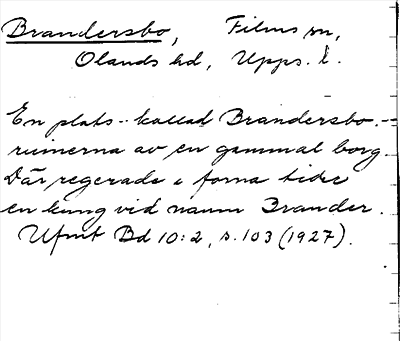 Brandersbo, Films sn,
Olands hd, Upps. l.
En plats - kallad Brandersbo. -
ruinerna av en gammal borg.
Där regerade i forna tider
en kung vid namn Brander.
Ufmt Bd 10:2, s. 103 (1927).